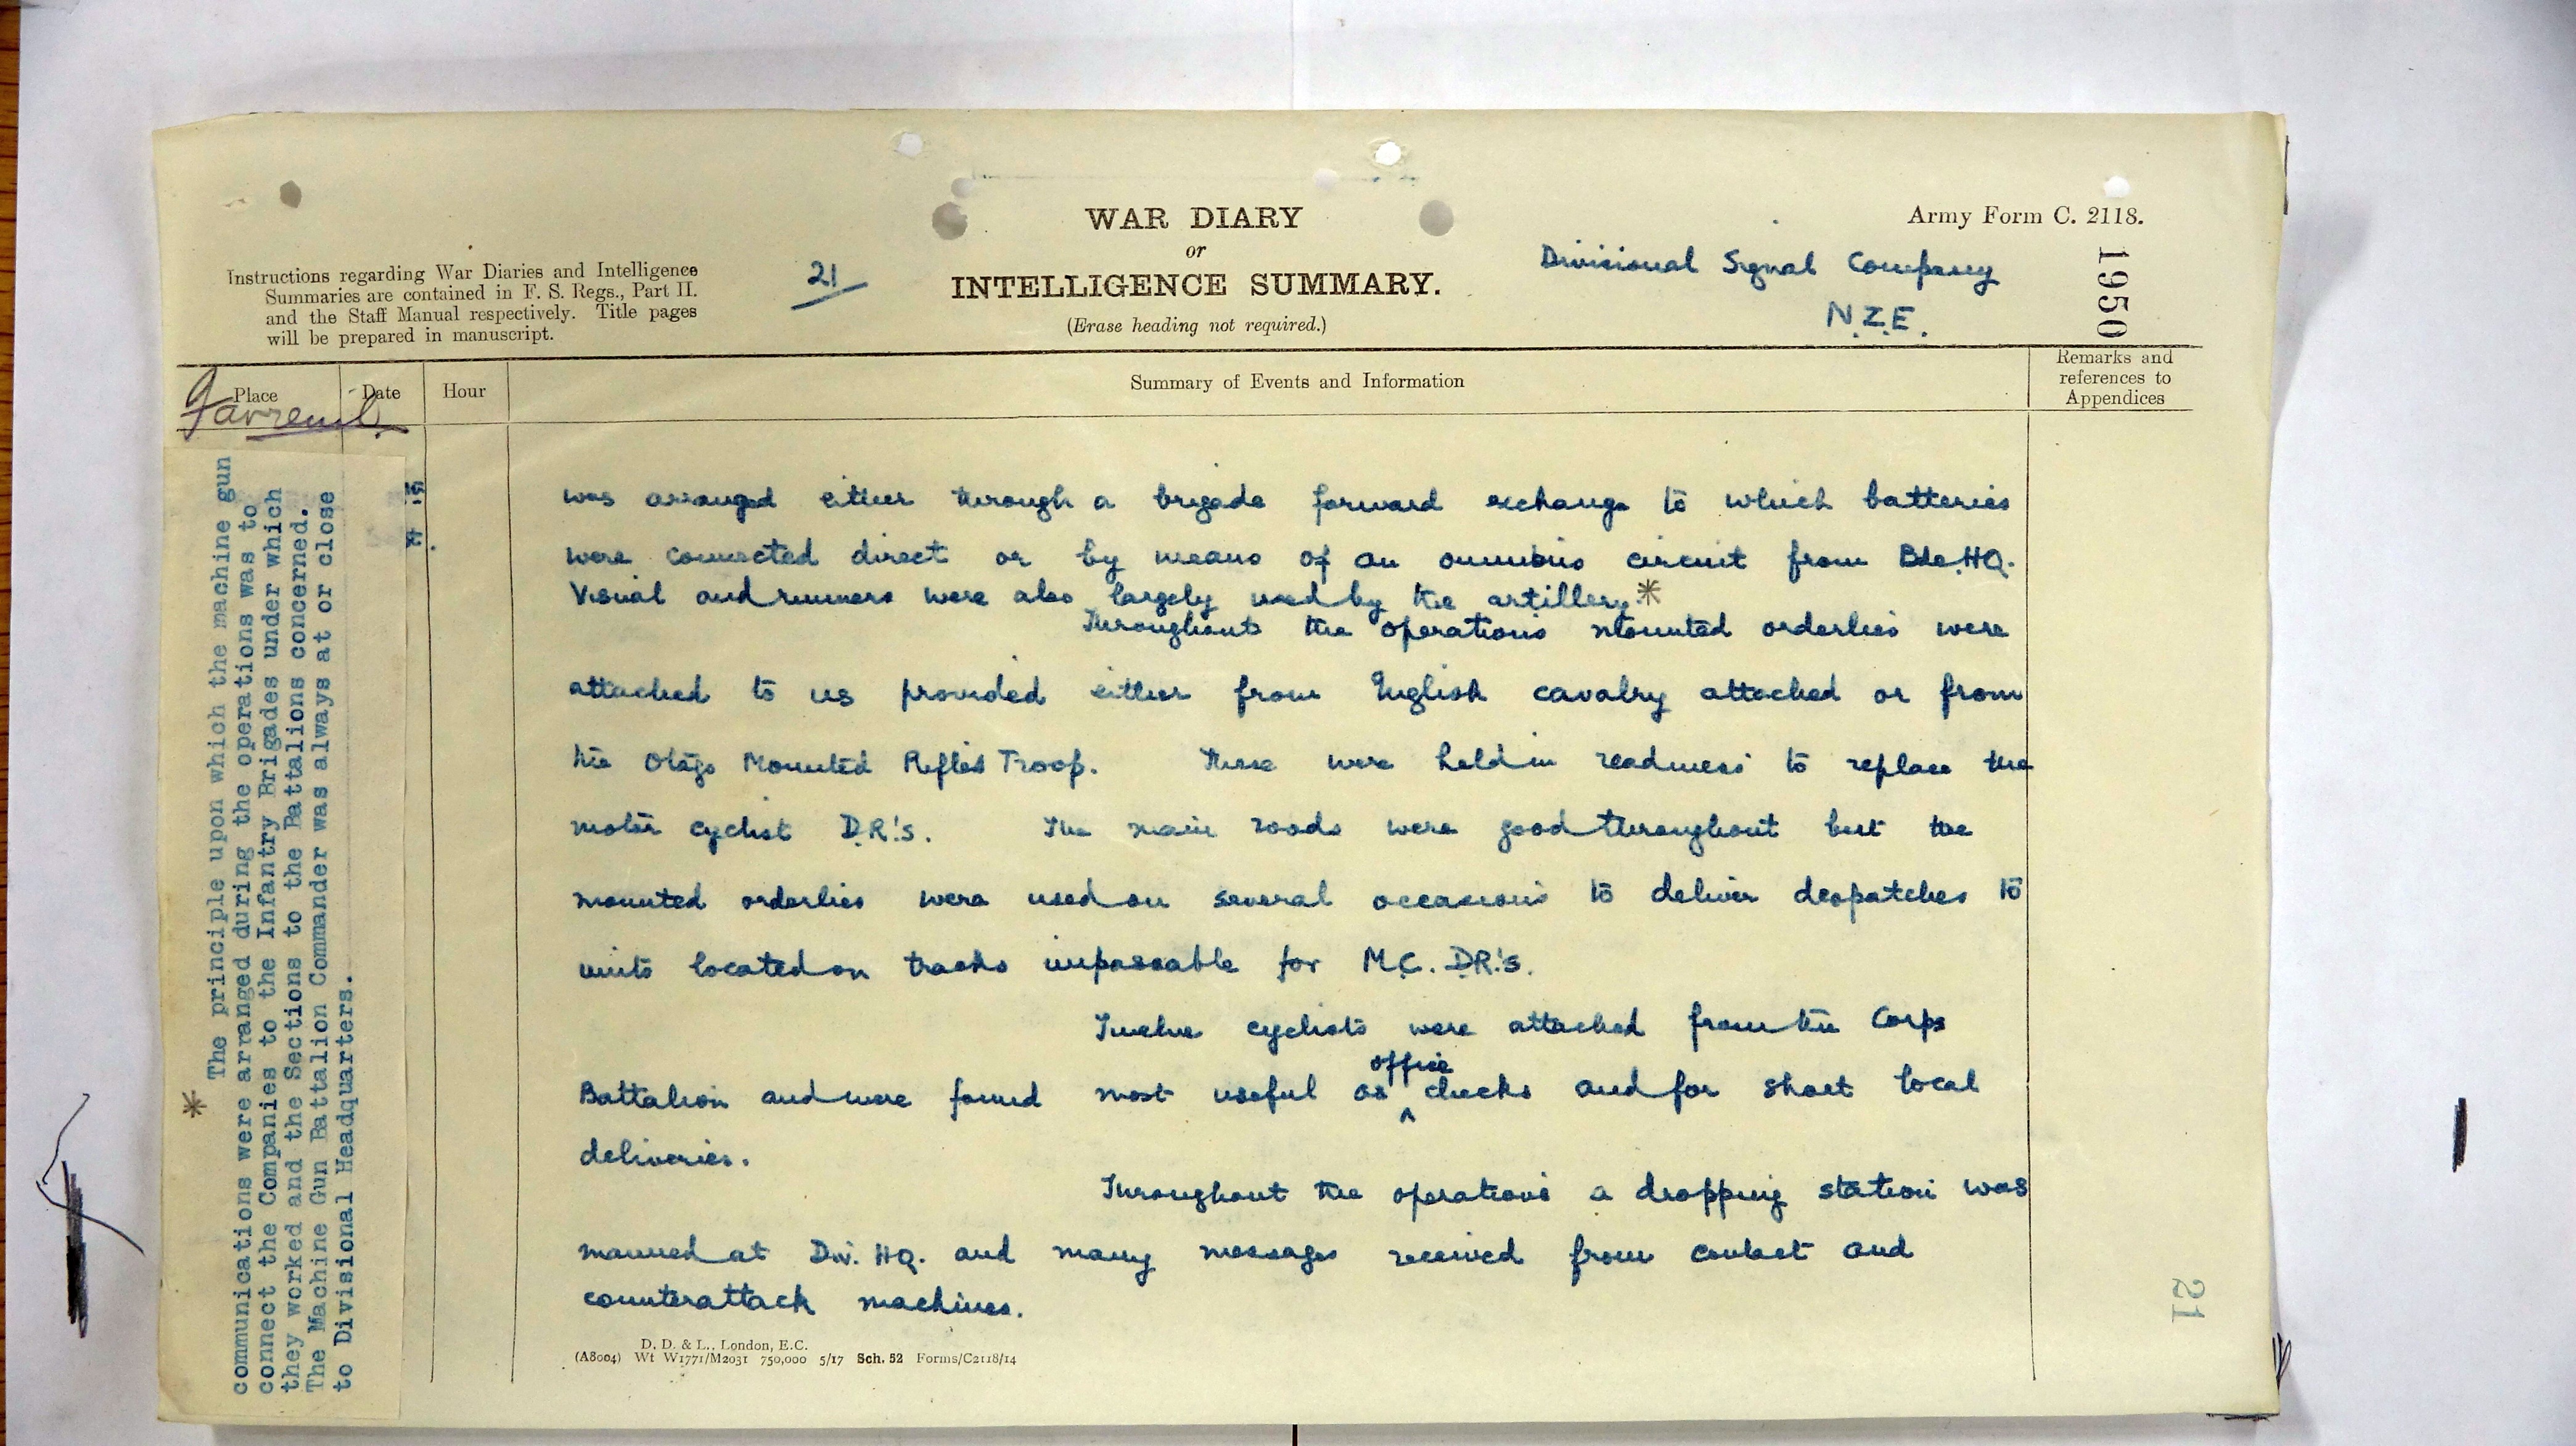 WAR DIARY
or
INTELLIGENCE SUMMARY.
(Erase heading not required.)
Army Form C. 2118.
Instructions regarding War Diaries and Intelligence
Summaries are contained in F. S. Regs., Part II.
and the Staff Manual respectively. Title pages
will be prepared in manuscript.
21
Divisional Signal Company
N.Z.E.
1950
Place
Date
Hour
Summary of Events and Information
Remarks and
references to
Appendices
Favreuil.
was arranged either through a brigade forward exchange to which batteries
were connected direct or by means of an omnibus circuit from Bde.HQ.
Visual and runners were also largely used by the artillery.*
Throughout the operations mounted orderlies were
attached to us provided either from English cavalry attached or from
the Otago Mounted Rifles Troop. These were held in readiness to replace the
motor cyclist D.R.'s. The main roads were good throughout but the
mounted orderlies were used on several occasions to deliver despatches to
units located on tracks impassable for M.C. D.R.'s.
Twelve cyclists were attached from the Corps
office
Battalion and were found most useful as ^ checks and for short local
deliveries.
Throughout the operations a dropping station was
manned at Div. HQ. and many messages received from contact and
counterattack machines.
* The principle upon which the machine gun
communications were arranged during the operations was to
connect the Companies to the Infantry Brigades under which
they worked and the Sections to the Battalions concerned.
The Machine Gun Battalion Commander was always at or close
to Divisional Headquarters.
21
D. D. & L., London, E.C.
(A8004) Wt W1771/M2031 750,000 5/17 Sch. 52 Forms/C2118/14